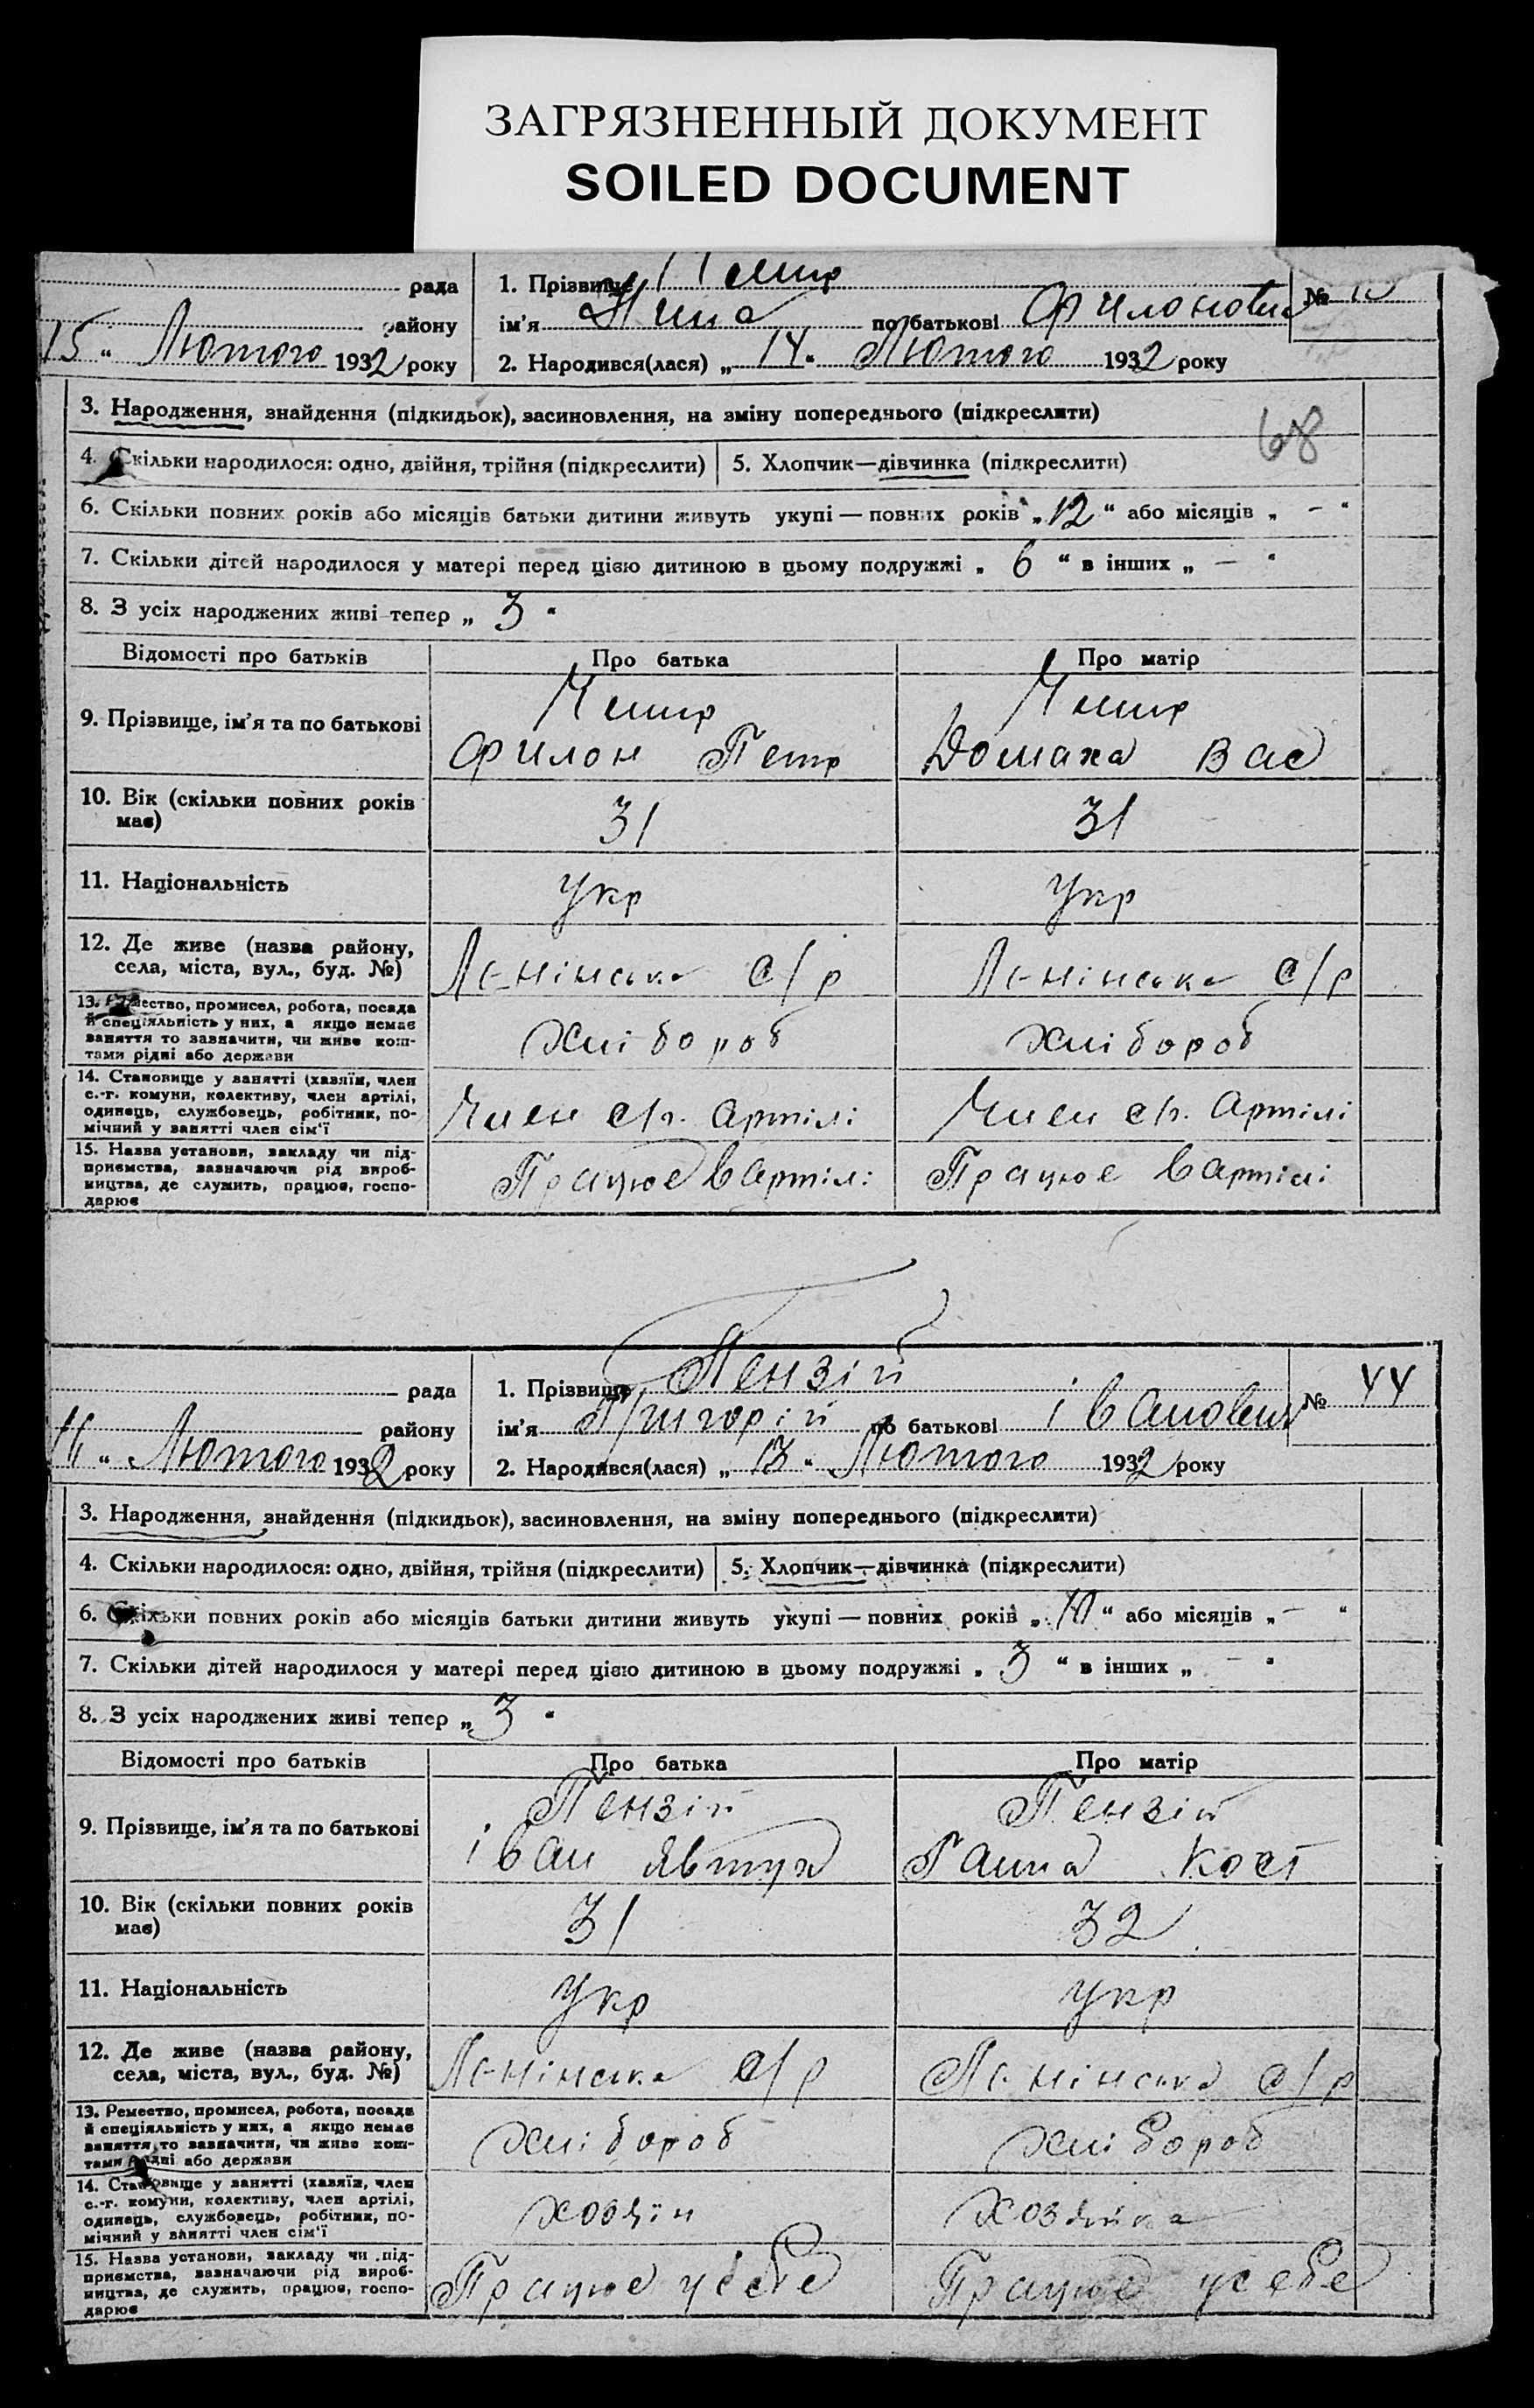 ЗАГРЯЗНЕННЫЙ ДОКУМЕНТ
SOILED DOCUMENT
рада
району
15 " Лютого 1932 року
1. Прізвище
ім'я Нина по батькові Филонови
2. Народився(лася) „ 14 " Лютого 1932 року
№
3. Народження, знайдення (підкидьок), засиновлення, на зміну попереднього (підкреслити)
68
4. Скільки народилося: одно, двійня, трійня (підкреслити)
5. Хлопчик—дівчинка (підкреслити)
6. Скільки повних років або місяців батьки дитини живуть укупі — повних років „ 12 " або місяців „ - "
7. Скільки дітей народилося у матері перед цією дитиною в цьому подружжі „ 6 " в інших „ — "
8. З усіх народжених живі тепер „ 3 "
Відомості про батьків
Про батька
Про матір
9. Прізвище, ім'я та по батькові
Филон Петр
Домаха Вас
10. Вік (скільки повних років має)
31
31
11. Національність
Укр
Укр
12. Де живе (назва району, села, міста, вул., буд. №)
Ленінська с/р
Ленінська с/р
13. Ремество, промисел, робота, посада й спеціяльність у них, а якщо немає заняття то зазначити, чи живе коштами рідні або держави
хлібороб
хлібороб
14. Становище у занятті (хазяїн, член с.-г. комуни, колективу, член артілі, одинець, службовець, робітник, помічний у занятті член сім'ї
Член с/г. артілі
Член с/г. артілі
15. Назва установи, закладу чи підприємства, зазначаючи рід виробництва, де служить, працює, господарює
Працює в артілі
Працює в артілі
рада
району
" Лютого 1932 року
1. Прізвище Пензій
ім'я Григорій по батькові іванович
2. Народився(лася) „ 13 " Лютого 1932 року
№ 44
3. Народження, знайдення (підкидьок), засиновлення, на зміну попереднього (підкреслити)
4. Скільки народилося: одно, двійня, трійня (підкреслити)
5. Хлопчик—дівчинка (підкреслити)
6. Скільки повних років або місяців батьки дитини живуть укупі — повних років „ 10 " або місяців „ — "
7. Скільки дітей народилося у матері перед цією дитиною в цьому подружжі „ 3 " в інших „ — "
8. З усіх народжених живі тепер „ 3 "
Відомості про батьків
Про батька
Про матір
9. Прізвище, ім'я та по батькові
Пензій
іван Явтух
Пензій
Ганна Кост
10. Вік (скільки повних років має)
31
32
11. Національність
Укр
Укр
12. Де живе (назва району, села, міста, вул., буд. №)
Ленінська с/р
Ленінська с/р
13. Ремество, промисел, робота, посада й спеціяльність у них, а якщо немає заняття, то зазначити, чи живе коштами рідні або держави
хлібороб
хлібороб
14. Становище у занятті (хазяїн, член с.-г. комуни, колективу, член артілі, одинець, службовець, робітник, помічний у занятті член сім'ї
хозяїн
хозяйка
15. Назва установи, закладу чи підприємства, зазначаючи рід виробництва, де служить, працює, господарює
Працює у себе
Працює у себе